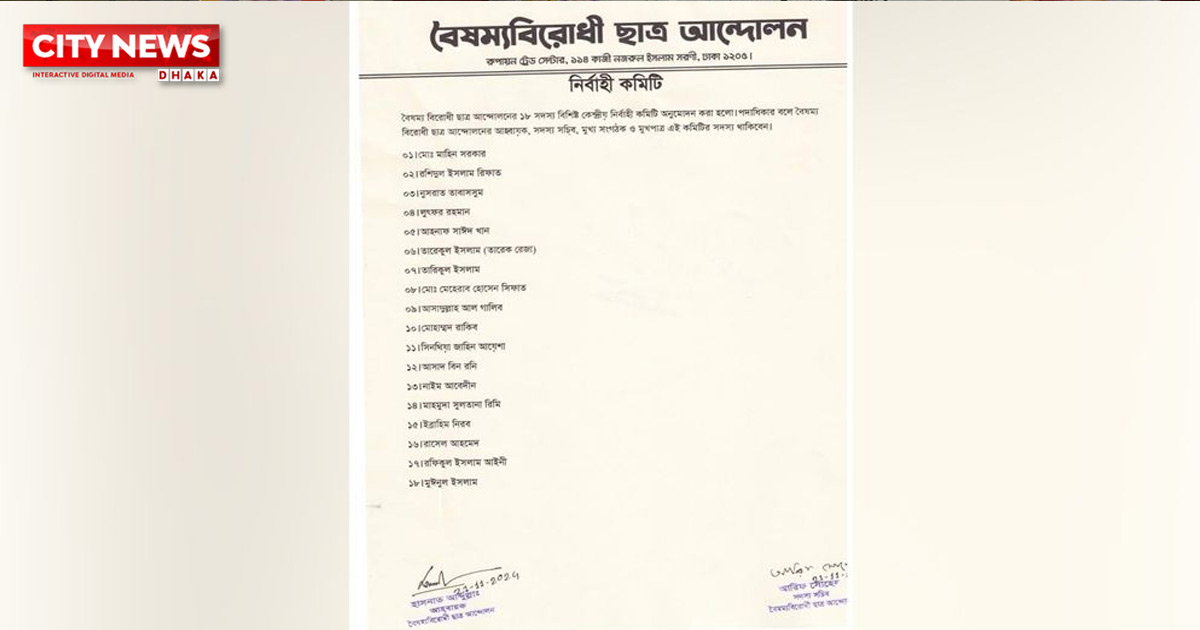 CITY NEWS
INTERACTIVE DIGITAL MEDIA
DHAKA
বৈষম্যবিরোধী ছাত্র আন্দোলন
রুপায়ন ট্রেড সেন্টার, ১১৪ কাজী নজরুল ইসলাম সরণী, ঢাকা ১২০৫।
নির্বাহী কমিটি
বৈষম্য বিরোধী ছাত্র আন্দোলনের ১৮ সদস্য বিশিষ্ট কেন্দ্রীয় নির্বাহী কমিটি অনুমোদন করা হলো। পদাধিকার বলে বৈষম্য
বিরোধী ছাত্র আন্দোলনের আহ্বায়ক, সদস্য সচিব, মুখ্য সংগঠক ও মুখপাত্র এই কমিটির সদস্য থাকিবেন।
০১। মোঃ মাহিন সরকার
০২। রশিদুল ইসলাম রিফাত
০৩। নুসরাত তাবাসসুম
০৪। লুৎফর রহমান
০৫। আহনাফ সাঈদ খান
০৬। তারেকুল ইসলাম (তারেক রেজা)
০৭। তারিকুল ইসলাম
০৮। মোঃ মেহেরাব হোসেন সিফাত
০৯। আসাদুল্লাহ আল গালিব
১০। মোহাম্মদ রাকিব
১১। সিনথিয়া জাহিন আয়েশা
১২। আসাদ বিন রনি
১৩। নাইম আবেদীন
১৪। মাহমুদা সুলতানা রিমি
১৫। ইব্রাহিম নিরব
১৬। রাসেল আহমেদ
১৭। রফিকুল ইসলাম আইনী
১৮। মুঈনুল ইসলাম
21-11-2024
হাসনাত আব্দুল্লাহ
আহবায়ক
বৈষম্যবিরোধী ছাত্র আন্দোলন
21-11-
আরিফ সোহেল
সদস্য সচিব
বৈষম্যবিরোধী ছাত্র